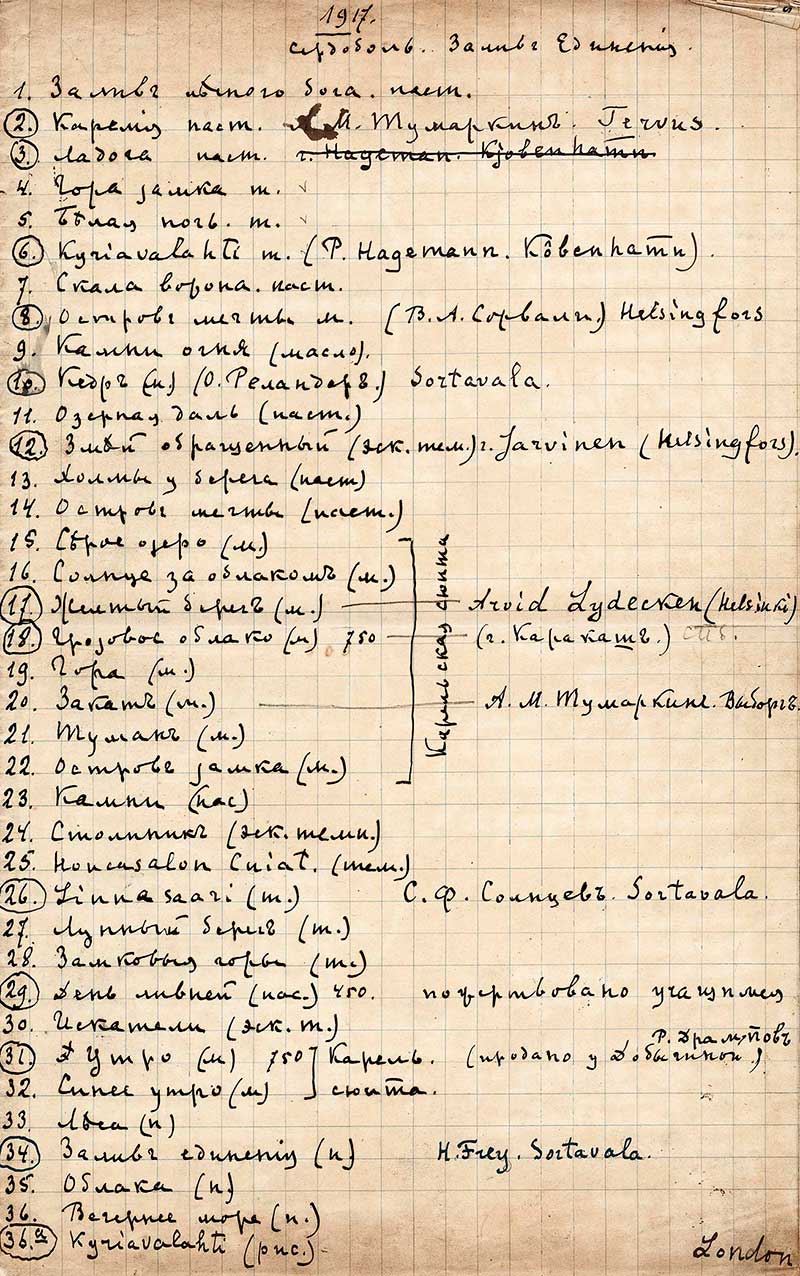 1917.
Сердоболь. Заливъ Единенія.
1. Заливъ лѣсного бога. паст.
2. Карелія паст. А. М. Тумаркинъ. Tervus.
3. Ладога паст. г. Hageman. Kjobenhamn
4. Гора замка т.
5. Бѣлая ночь. т.
6. Kyriavalahti т. (Р. Hagemann. Kôbenhamn).
7. Скала ворона. паст.
8. Островъ мечты м. (В. А. Сорвали.) Helsingfors
9. Камни огня (масло).
10. Кедръ (п.) (О. Реландеръ.) Sortavala.
11. Озерная даль (паст.)
12. Змѣй обращенный (эск. тем.) г. Jarvinen (Helsingfors).
13. Холмы у берега (паст)
14. Островъ мечты (паст.)
15. Сѣрое озеро (м.)
16. Солнце за облакомъ (м.)
17. Желтый берегъ (м.) Arvid Lydecken (Helsinki)
18. Грозовое облако (м) 750 (г. Каракашъ.) СПб.
19. Гора (м.)
20. Закатъ (м.) А. М. Тумаркинъ. Выборгъ.
21. Туманъ (м.)
22. Островъ замка (м.)
Карельская сюита
23. Камни (пас)
24. Столпникъ (эск. темп.)
25. (тем.)
26. Linnasaari (т.) С. Ф. Солнцевъ. Sortavala.
27. Лунный берегъ (т.)
28. Замковыя горы (т.)
29. День ливней (пас.) 450. пожертвовано учащимся
30. Искатели (эск. т.)
31. Утро (м) 750 Карель. (продано у Добычиной.)
32. Синее утро (м) сюита.
33. Лѣса (п)
34. Заливъ единенія (п) H. Frey. Sortavala.
35. Облака (п)
36. Вечернее море (п.)
36.а Kyriavalahti (рис.) London